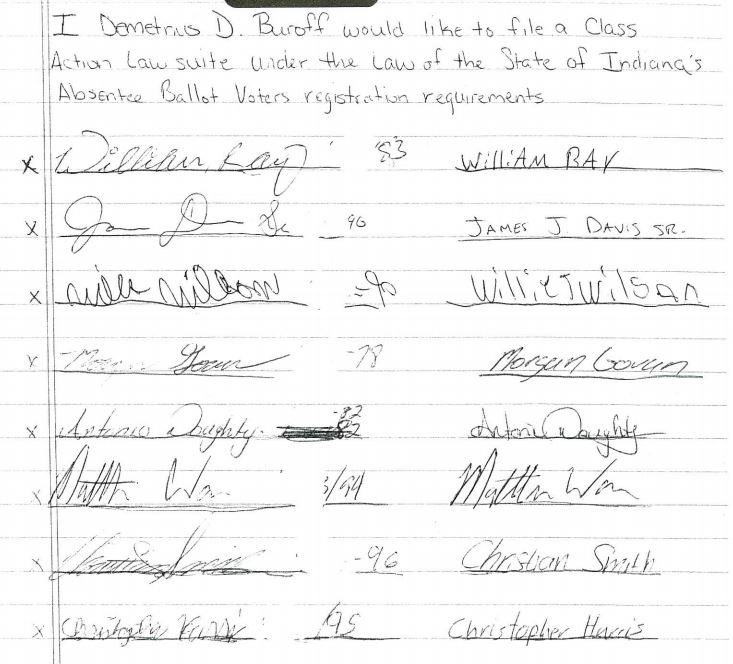 I Demetrius D. Buroff would like to file a Class
Action Law suite under the Law of the State of Indiana's
Absentee Ballot Voters registration requirements
x William Ray '83 WilliAM RAY
x 96 JAMES J. DAVIS SR.
x Willie Wilson -90 Willie J Wilson
x Morgan Govan -78 Morgan Govan
x Antonio Doughty -82 82 Antonio Doughty
x Matth 3/94 Matth
x -96 Christian Smith
x Christopher Harris /95 Christopher Harris